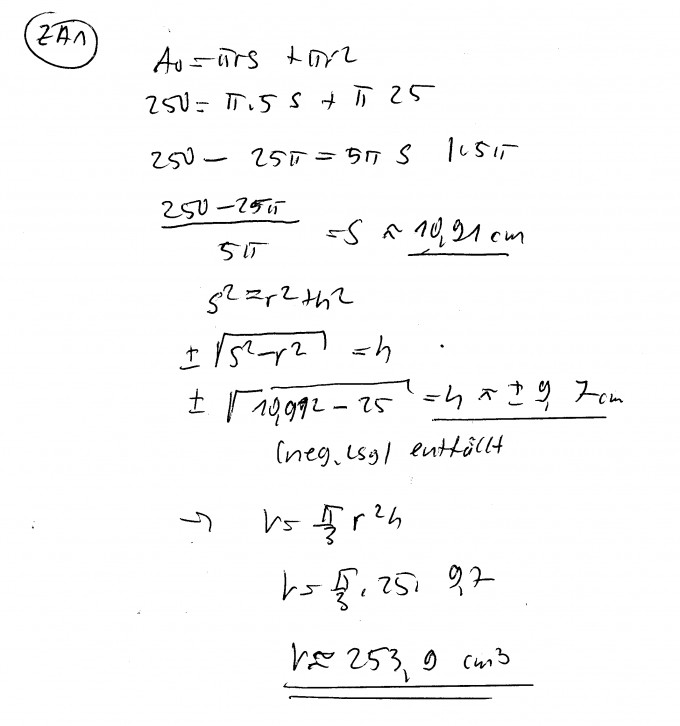 ZA1
A₀ = πrs + πr2
250 = π·5 s + π 25
250 − 25π = 5π s |:5π
250 − 25π / 5π = s ≈ 10,91 cm
s² = r² + h²
± √(s² − r²) = h
± √(10,91² − 25) = h ≈ ± 9,7cm
(neg. Lsg) entfällt
→ V = π/3 r²h
V = π/3 · 25 · 9,7
V ≈ 253,9 cm³